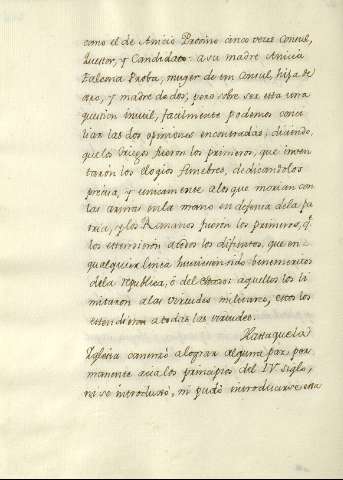 como el de Anicio Provino cinco veces Consul,
Questor, y Candidato: a su madre Anicia
Falcona Proba, muger de un Consul, hija de
otro, y madre de dos, pero sobre ser esta una
question inutil, facilmente podemos conci
liar las dos opiniones encontradas; diciendo,
que los Griegos fueron los primeros, que inven
taron los elogios funebres, dedicandolos
precisa, y unicamente a los que morian con
las armas en la mano en defensa de la pa
tria, y los Romanos fueron los primeros, q.e
los estendieron a todos los difuntos, que en
qualquiera linea huviesen sido benemeritos
de la republica, ò del estado: aquellos los li
mitaron a las virtudes militares, estos los
estendieron a todas las virtudes.
Hasta que la
Iglesia comenzò a lograr alguna paz per
manente acia los principios del IV siglo,
no se introduxo, ni pudo introducirse esta